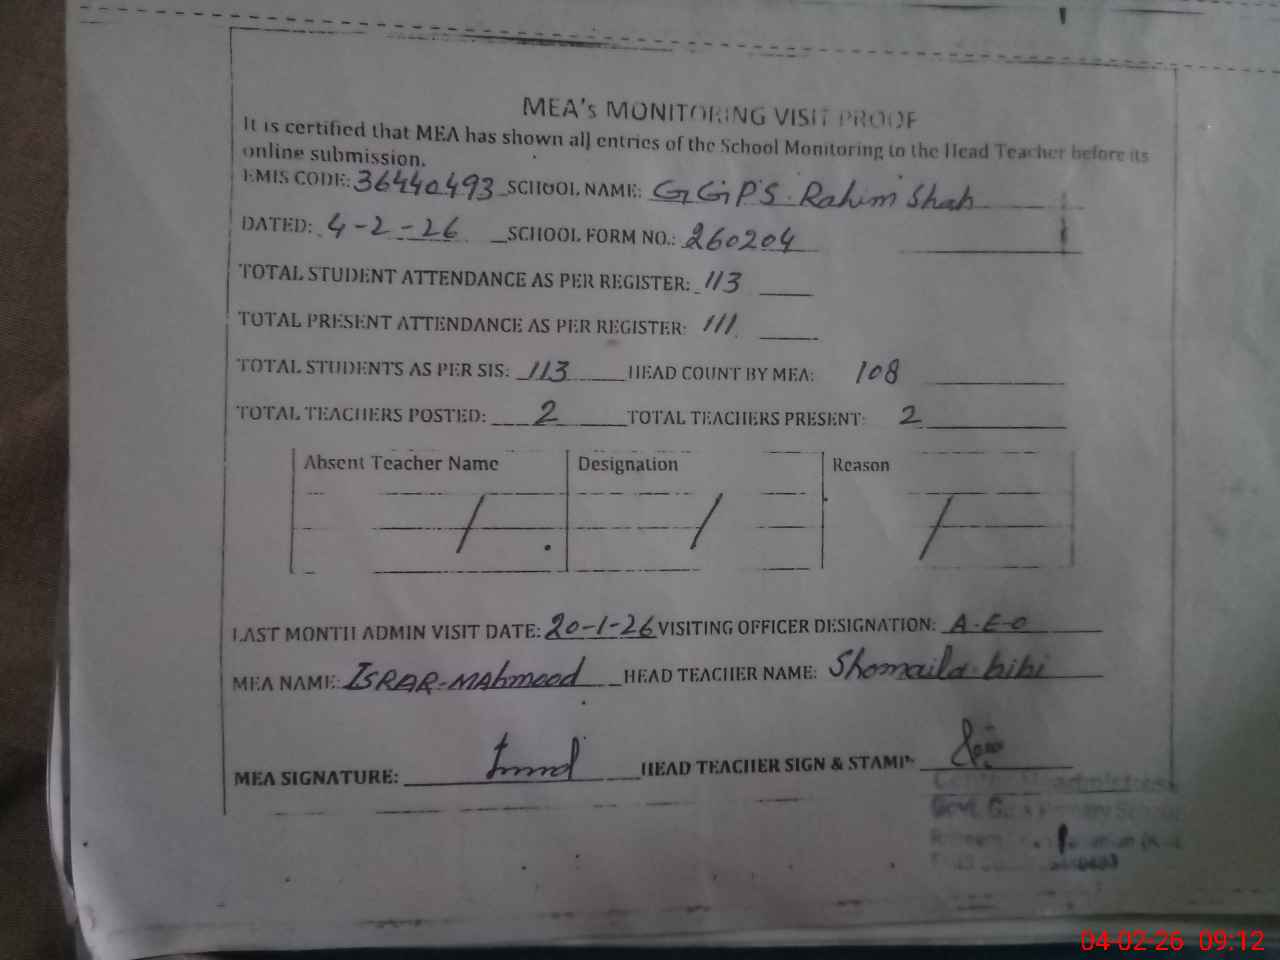 MEA's MONITORING VISIT PROOF
It is certified that MEA has shown all entries of the School Monitoring to the Head Teacher before its
online submission.
EMIS CODE: 36440493 SCHOOL NAME: GGPS. Rahim Shah
DATED: 4-2-26 SCHOOL FORM NO.: 260204
TOTAL STUDENT ATTENDANCE AS PER REGISTER: 113
TOTAL PRESENT ATTENDANCE AS PER REGISTER: 111
TOTAL STUDENTS AS PER SIS: 113 HEAD COUNT BY MEA: 108
TOTAL TEACHERS POSTED: 2 TOTAL TEACHERS PRESENT: 2
Absent Teacher Name Designation Reason
/ / /
LAST MONTH ADMIN VISIT DATE: 20-1-26 VISITING OFFICER DESIGNATION: A-E-O
MEA NAME: ISRAR-MAhmood HEAD TEACHER NAME: Shomaila bibi
MEA SIGNATURE: HEAD TEACHER SIGN & STAMP
Govt. G
04-02-26 09:12